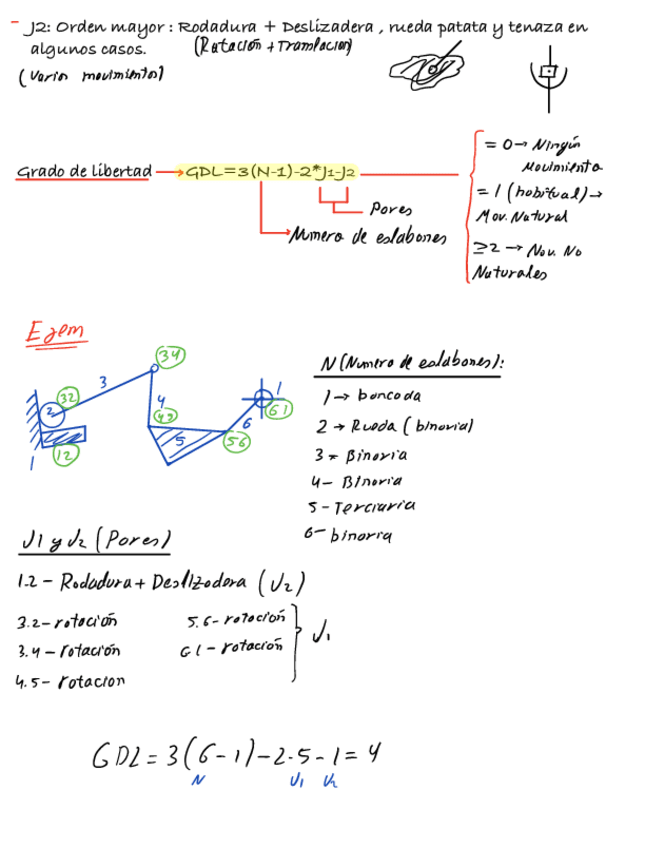 - J2: Orden mayor: Rodadura + Deslizadera, rueda patata y tenaza en
algunos casos.
(Rotación + Translacion)
(Varios movimientos)
Grado de libertad → GDL=3(N-1)-2*J1-J2
Pares
Numero de eslabones
= 0 → Ningún
Movimiento
= 1 (habitual) →
Mov. Natural
≥2 → Mov. No
Naturales
Ejem
34
3
32
2
4
43
1
61
6
5
56
12
1
N (Numero de eslabones):
1 → bancada
2 → Rueda (binaria)
3 = Binaria
4 - Binaria
5 - Terciaria
6 - binaria
J1 y J2 (Pares)
1.2 - Rodadura + Deslizadera (J2)
3.2 - rotación
5.6 - rotación
3.4 - rotación
61 - rotación
J1
4.5 - rotacion
GDL = 3(6-1)-2·5-1=4
N J1 J2